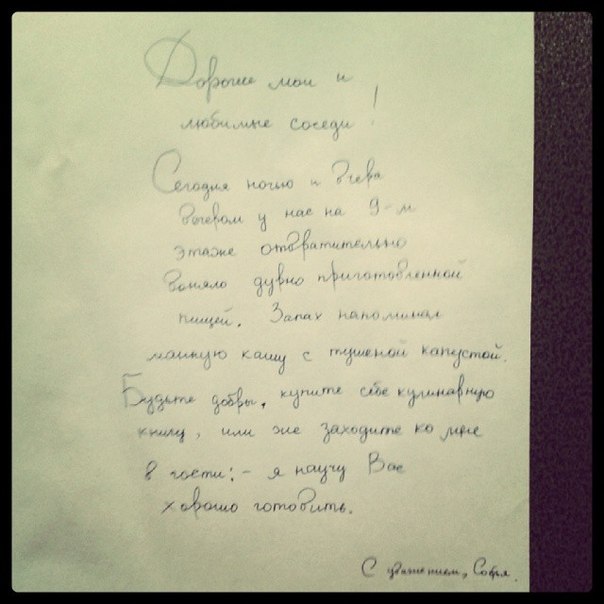 Дорогие мои и
любимые соседи!
Сегодня ночью и вчера
вечером у нас на 9-м
этаже отвратительно
воняло дурно приготовленной
пищей. Запах напоминал
манную кашу с тушеной капустой.
Будьте добры, купите себе кулинарную
книгу, или же заходите ко мне
в гости: - я научу Вас
хорошо готовить.
С уважением, Софья.